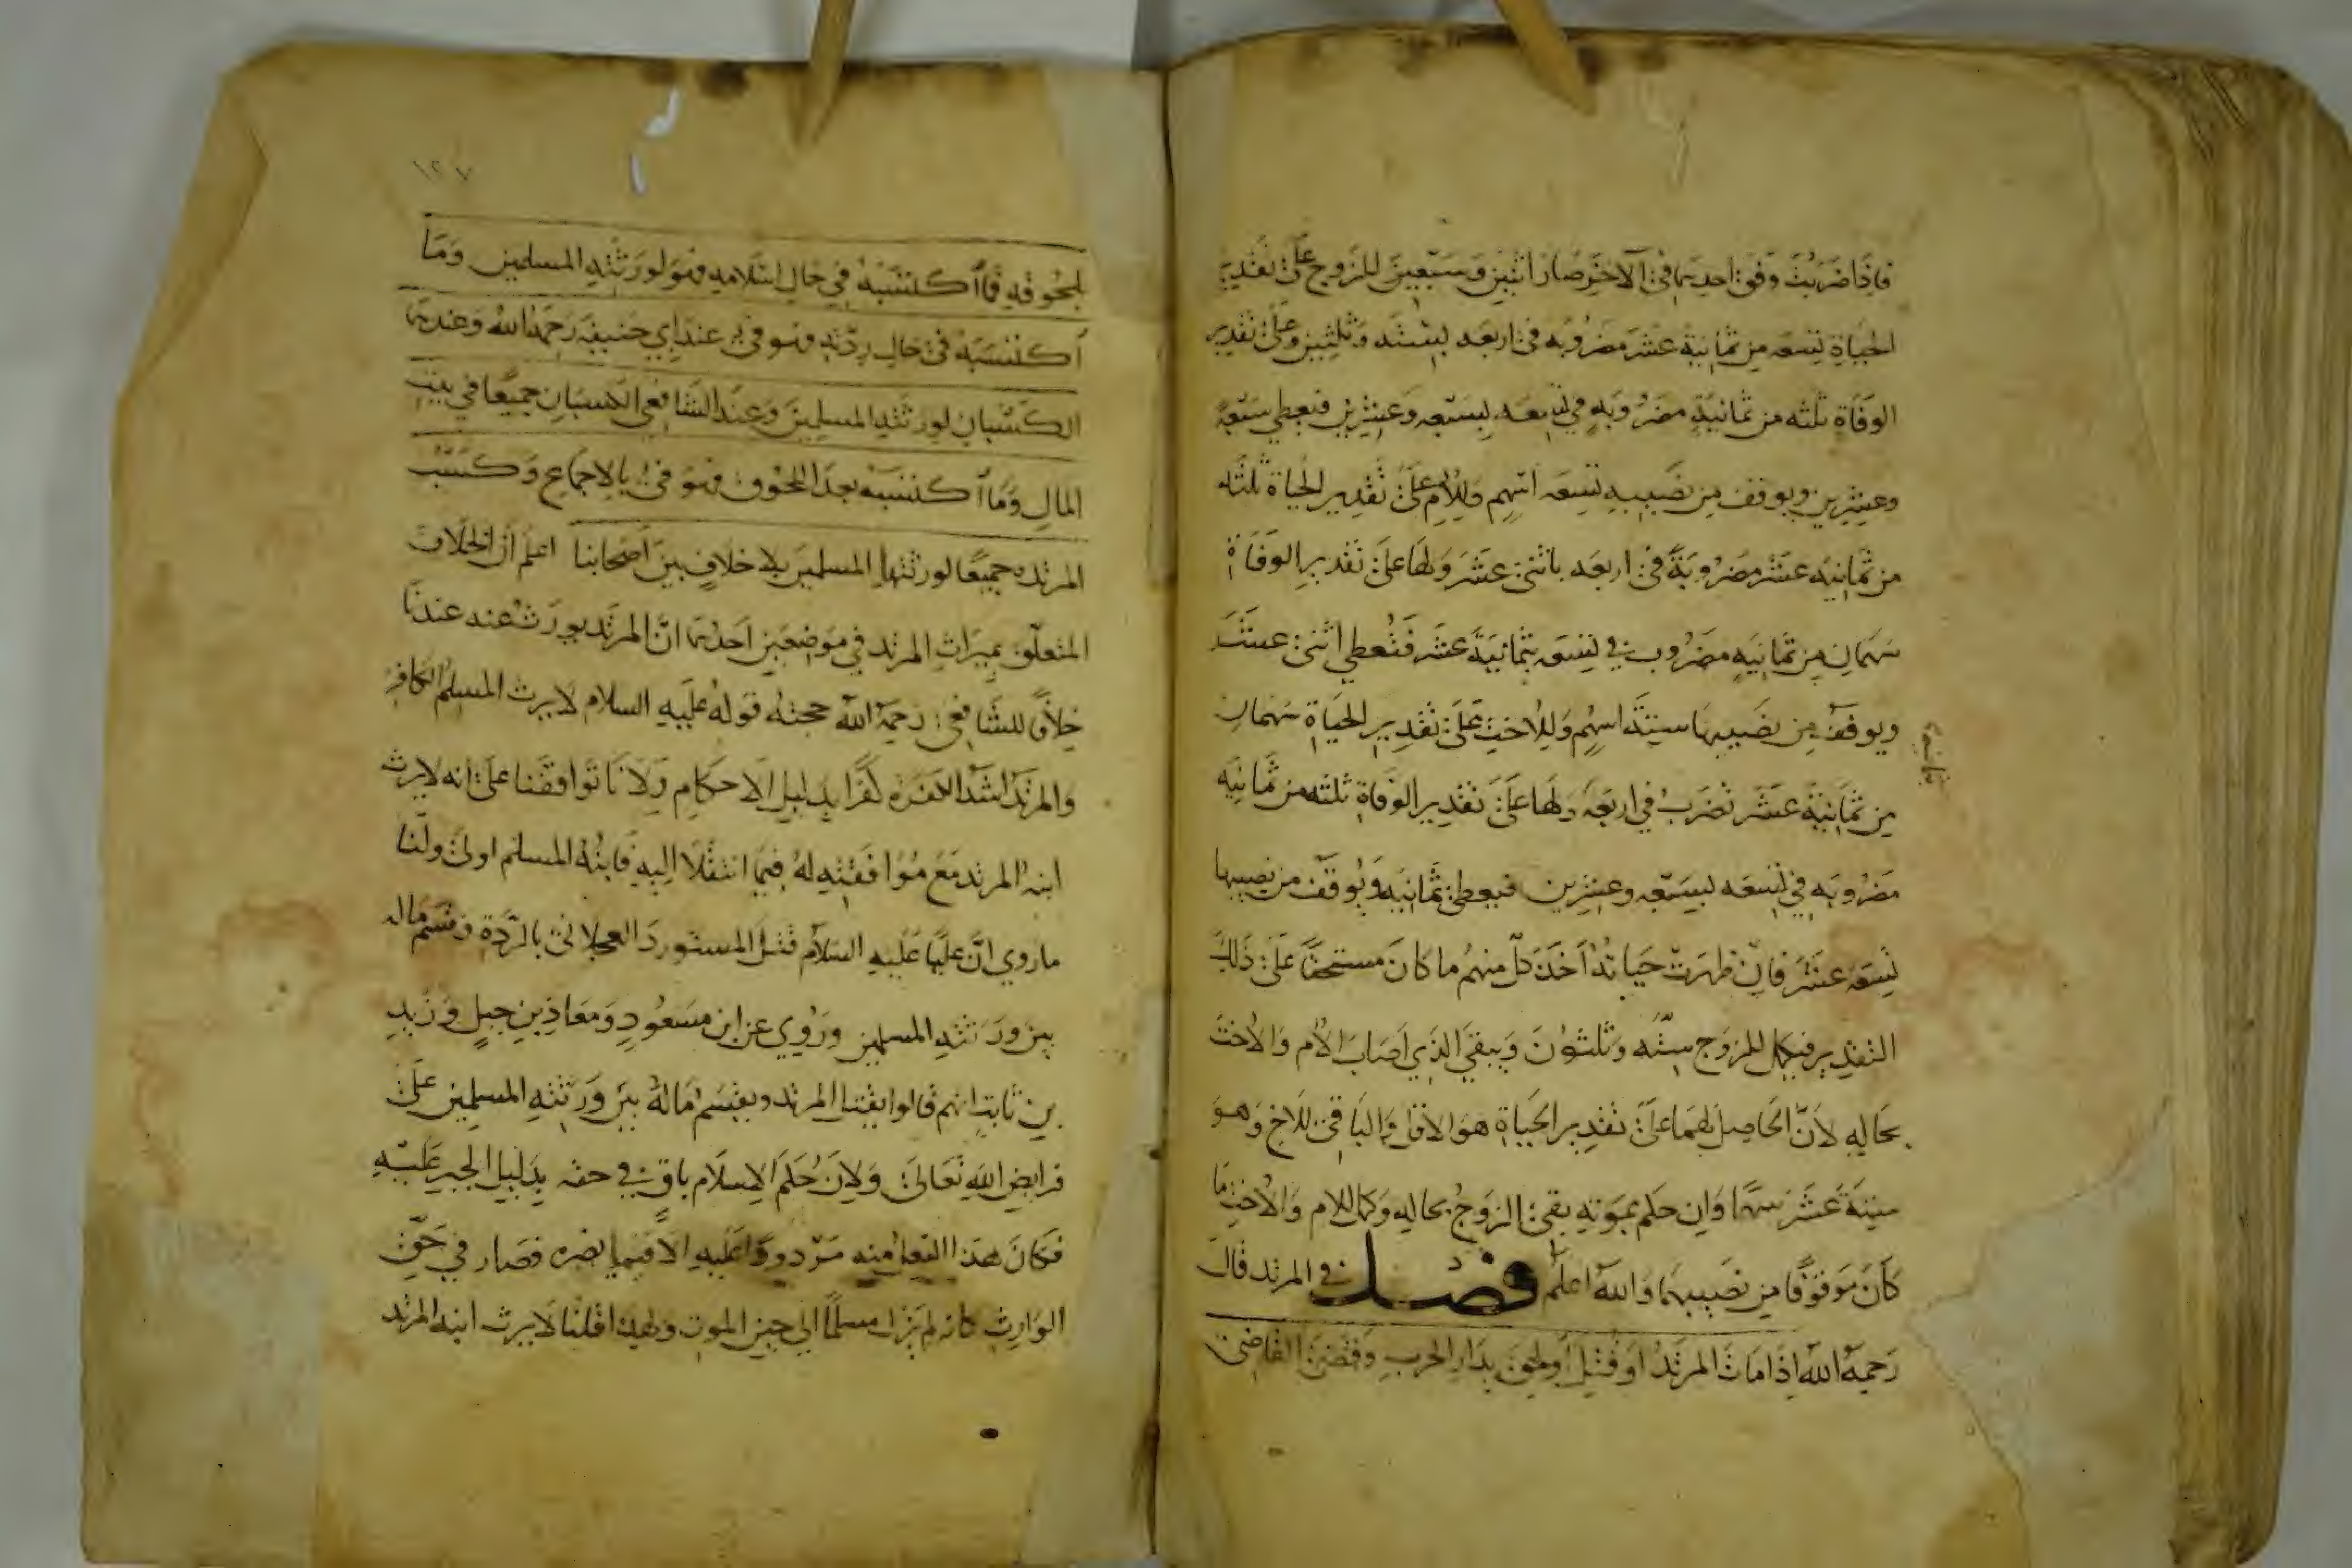 فاذا ضربت وفق احديهما في الآخر صار اثنين وسبعين للزوج على تقدير
الحياة تسعه من ثمانية عشر مضروبه في اربعه بستة وثلثين وعلى تقدير
الوفاة ثلثه من ثمانية مضروبه في تسعه بسبعه وعشرين فيعطى سبعة
وعشرين ويوقف من نصيبه تسعه اسهم وللام على تقدير الحياة ثلثه
من ثمانيه عشر مضروبة في اربعه باثنى عشر ولها على تقدير الوفاة
سهمان من ثمانيه مضروب في تسعه بثمانية عشر فتعطي اثنى عشر
ويوقف من نصيبها ستة اسهم وللاخت على تقدير الحياة سهمان
من ثمانية عشر تضرب في اربعة ولها على تقدير الوفاة ثلثه من ثمانيه
مضروبه في تسعه بسبعه وعشرين فيعطى ثمانيه ويوقف من نصيبها
تسعه عشر فان ظهرت حياته اخذ كل منهم ما كان مستحقا على ذلك
التقدير فيكمل للزوج ستة وثلثون ويبقى الذي اصاب الام والاخت
بحاله لان الحاصل لهما على تقدير الحياة هو الاقل والباقي للاخ وهو
ستة عشر سهما وان حكم بموته بقى الزوج بحاله وكمل للام والاخت ما
كان موقوفا من نصيبهما والله اعلم فصل في المرتد قال
رحمه الله اذا مات المرتد او قتل او لحق بدار الحرب وقضى القاضى
١٢٧
بلحوقه فما اكتسبه في حال اسلامه فهو لورثته المسلمين وما
اكتسبه في حال ردته فهو فيء عند ابي حنيفه رحمه الله وعندهما
الكسبان لورثته المسلمين وعند الشافعي الكسبان جميعا في بيت
المال وما اكتسبه بعد اللحوق فهو فيء بالاجماع وكسب
المرتده جميعا لورثتها المسلمين بلا خلاف بين اصحابنا اعلم ان الخلاف
المتعلق بميراث المرتد في موضعين احدهما ان المرتد يورث عنه عندنا
خلافا للشافعي رحمه الله حجته قوله عليه السلام لا يرث المسلم الكافر
والمرتد اشد الكفره كفرا بدليل الاحكام ولانا توافقنا على انه لا يرث
ابنه المرتد مع موافقته له فيما انتقلا اليه فابنه المسلم اولى ولنا
ما روي ان عليا عليه السلام قتل المستورد العجلاني بالردة وقسم ماله
بين ورثته المسلمين وروي عن ابن مسعود ومعاذ بن جبل وزيد
بن ثابت انهم قالوا يقتل المرتد ويقسم ماله بين ورثته المسلمين على
فرايض الله تعالى ولان حكم الاسلام باق في حقه بدليل الجبر عليه
فكان هذا الفعل منه مردودا عليه الا فيما يضره فصار في حق
الوارث كانه لم يزل مسلما الى حين الموت ولهذا قلنا لا يرث ابنه المرتد